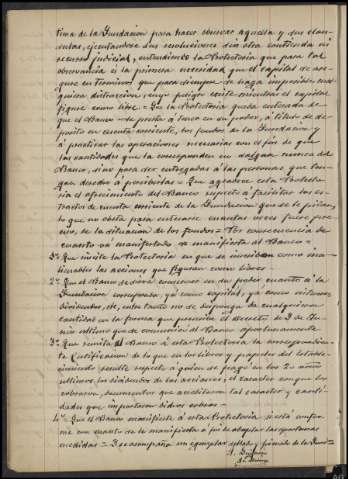 tima de la Fundacion para hacer observar aquella y sus clau-
sulas, ejecutandose sus resoluciones sin otra contienda ni
recurso judicial, entendiendo la Protectoria que para tal
observancia es la primera necesidad que el capital se ase-
gure en terminos que para siempre se haga imposible cual-
quiera distraccion, cuyo peligro existe mientras el capital
figure como libre = Que la Protectoria queda enterada de
que el Banco se presta á tener en su poder, á titulo de de-
posito en cuenta corriente, los fondos de la Fundacion y
á practicar las operaciones necesarias con el fin de que
las cantidades que la correspondan no salgan nunca del
Banco, sino para ser entregadas á las personas que ten-
gan derecho á percibirlas = Que agradece esta Protecto-
ria el ofrecimiento del Banco respecto á facilitar los es-
tractos de cuenta corriente de la Fundacion que se le pidan,
lo que no obsta para enterarse cuantas veces fuere pre-
ciso, de la situacion de los fondos = Por consecuencia de
cuanto vá manifestado se manifiesta al Banco =
1º Que insiste la Protectoria en que se inscriban como ina-
lienables las acciones que figuran como libres.
2º Que el Banco se sirva conservar en su poder cuanto á la
Fundacion corresponda, ya como capital, ya como intereses,
dividendos, etc, entre tanto no se disponga de cualquiera
cantidad en la forma que prescribe el decreto de 3 de Ju-
nio ultimo que se comunicó al Banco oportunamente
3º Que remita el Banco á esta Protectoria la correspondien-
te Certificacion de lo que en los libros y papeles del Estable-
cimiento resulte respecto á quien se pagó en los 20 años
ultimos los dividendos de las acciones, el caracter con que los
cobraron, documentos que acreditaron tal caracter y canti-
dades que importaron dichos cobros =
4º Que el Banco manifieste á esta Protectoria si está confor-
me con cuanto se le manifiesta á fin de adoptar las oportunas
medidas = Se acompaña un ejemplar sellado y firmado de la